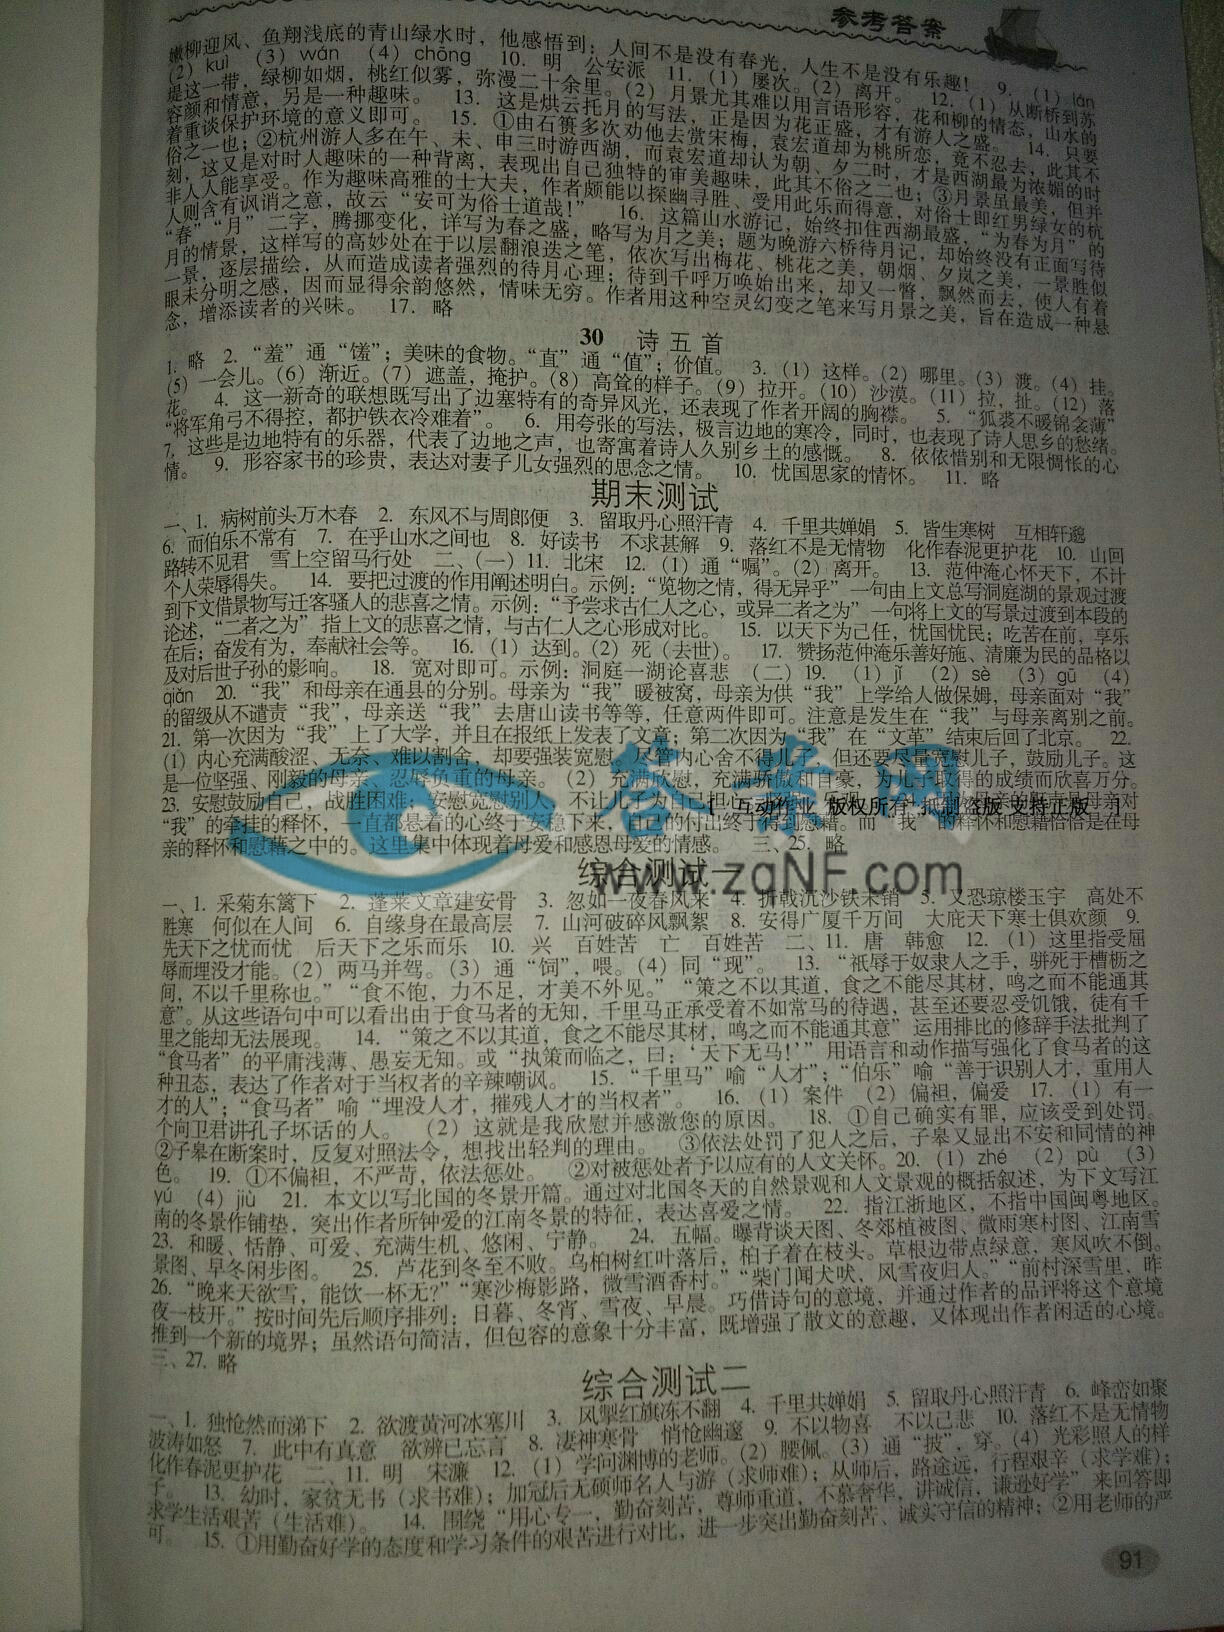 参考答案
嫩柳迎风、鱼翔浅底的青山绿水时，他感悟到：人间不是没有春光，人生不是没有乐趣！ 9. (1) lán
(2) kuì (3) wán (4) chōng 10. 明 公安派 11. (1) 屡次。(2) 离开。 12. (1) 从断桥到苏
堤这一带，绿柳如烟，桃红似雾，弥漫二十余里。(2) 月景尤其难以用言语形容，花和柳的情态，山水的
容颜和情意，另是一种趣味。 13. 这是烘云托月的写法，正是因为花正盛，才有游人之盛。 14. 只要
着重谈保护环境的意义即可。 15. ①由石篑多次劝他去赏宋梅，袁宏道却为桃所恋，竟不忍去，此其不
俗之一也；②杭州游人多在午、未、申三时游西湖，而袁宏道却认为朝、夕二时，才是西湖最为浓媚的时
刻，这又是对时人趣味的一种背离，表现出自己独特的审美趣味，此其不俗之二也；③月景虽最美，但并
非人人能享受。作为趣味高雅的士大夫，作者颇能以探幽寻胜、受用此乐而得意，对俗士即红男绿女的杭
人则含有讽消之意，故云“安可为俗士道哉！” 16. 这篇山水游记，始终扣住西湖最盛，“为春为月”的
“春”“月”二字，腾挪变化，详写为春之盛，略写为月之美；题为晚游六桥待月记，却始终没有正面写待
月的情景，这样写的高妙处在于以层翻浪迭之笔，依次写出梅花、桃花之美，朝烟、夕岚之美，一景胜似
一景，逐层描绘，从而造成读者强烈的待月心理；待到千呼万唤始出来，却又一瞥，飘然而去，使人有着
眼未分明之感，因而显得余韵悠然，情味无穷。作者用这种空灵幻变之笔来写月景之美，旨在造成一种悬
念，增添读者的兴味。 17. 略
30 诗五首
1. 略 2. “羞”通“馐”；美味的食物。“直”通“值”；价值。 3. (1) 这样。(2) 哪里。(3) 渡。(4) 挂。
(5) 一会儿。(6) 渐近。(7) 遮盖，掩护。(8) 高耸的样子。(9) 拉开。(10) 沙漠。(11) 拉，扯。(12) 落
花。 4. 这一新奇的联想既写出了边塞特有的奇异风光，还表现了作者开阔的胸襟。 5. “狐裘不暖锦衾薄”
“将军角弓不得控，都护铁衣冷难着”。 6. 用夸张的写法，极言边地的寒冷，同时，也表现了诗人思乡的愁绪。
7. 这些是边地特有的乐器，代表了边地之声，也寄寓着诗人久别乡土的感慨。 8. 依依惜别和无限惆怅的心
情。 9. 形容家书的珍贵，表达对妻子儿女强烈的思念之情。 10. 忧国思家的情怀。 11. 略
期末测试
一、1. 病树前头万木春 2. 东风不与周郎便 3. 留取丹心照汗青 4. 千里共婵娟 5. 皆生寒树 互相轩邈
6. 而伯乐不常有 7. 在乎山水之间也 8. 好读书 不求甚解 9. 落红不是无情物 化作春泥更护花 10. 山回
路转不见君 雪上空留马行处 二、(一) 11. 北宋 12. (1) 通“嘱”。(2) 离开。 13. 范仲淹心怀天下，不计
个人荣辱得失。 14. 要把过渡的作用阐述明白。示例：“览物之情，得无异乎”一句由上文总写洞庭湖的景观过渡
到下文借景物写迁客骚人的悲喜之情。示例：“予尝求古仁人之心，或异二者之为”一句将上文的写景过渡到本段的
论述，“二者之为”指上文的悲喜之情，与古仁人之心形成对比。 15. 以天下为己任，忧国忧民；吃苦在前，享乐
在后；奋发有为，奉献社会等。 16. (1) 达到。(2) 死（去世）。 17. 赞扬范仲淹乐善好施、清廉为民的品格以
及对后世子孙的影响。 18. 宽对即可。示例：洞庭一湖论喜悲 (二) 19. (1) jǐ (2) sè (3) gū (4)
qiǎn 20. “我”和母亲在通县的分别。母亲为“我”暖被窝，母亲为供“我”上学给人做保姆，母亲面对“我”
的留级从不谴责“我”，母亲送“我”去唐山读书等等，任意两件即可。注意是发生在“我”与母亲离别之前。
21. 第一次因为“我”上了大学，并且在报纸上发表了文章；第二次因为“我”在“文革”结束后回了北京。 22.
(1) 内心充满酸涩、无奈、难以割舍，却要强装宽慰。尽管内心舍不得儿子，但还要尽量宽慰儿子，鼓励儿子。这
是一位坚强、刚毅的母亲、忍辱负重的母亲。 (2) 充满欣慰，充满骄傲和自豪，为儿子取得的成绩而欣喜万分。
23. 安慰鼓励自己，战胜困难；安慰宽慰别人，不让儿子为自己担心
互动作业 版权所有 抵制盗版 支持正版
“我”的牵挂的释怀，一直都悬着的心终于安稳下来，自己的付出终于得到慰藉。而“我”的释怀和慰藉恰恰是在母
亲的释怀和慰藉之中的。这里集中体现着母爱和感恩母爱的情感。 三、25. 略
答案网
www.zqNF.com
综合测试一
一、1. 采菊东篱下 2. 蓬莱文章建安骨 3. 忽如一夜春风来 4. 折戟沉沙铁未销 5. 又恐琼楼玉宇 高处不
胜寒 何似在人间 6. 自缘身在最高层 7. 山河破碎风飘絮 8. 安得广厦千万间 大庇天下寒士俱欢颜 9.
先天下之忧而忧 后天下之乐而乐 10. 兴 百姓苦 亡 百姓苦 二、11. 唐 韩愈 12. (1) 这里指受屈
辱而埋没才能。(2) 两马并驾。(3) 通“饲”，喂。(4) 同“现”。 13. “祇辱于奴隶人之手，骈死于槽枥之
间，不以千里称也。”“食不饱，力不足，才美不外见。”“策之不以其道，食之不能尽其材，鸣之而不能通其
意”。从这些语句中可以看出由于食马者的无知，千里马正承受着不如常马的待遇，甚至还要忍受饥饿，徒有千
里之能却无法展现。 14. “策之不以其道，食之不能尽其材，鸣之而不能通其意”运用排比的修辞手法批判了
“食马者”的平庸浅薄、愚妄无知。或“执策而临之，曰：‘天下无马！’”用语言和动作描写强化了食马者的这
种丑态，表达了作者对于当权者的辛辣嘲讽。 15. “千里马”喻“人才”；“伯乐”喻“善于识别人才，重用人
才的人”；“食马者”喻“埋没人才，摧残人才的当权者”。 16. (1) 案件 (2) 偏袒，偏爱 17. (1) 有一
个向卫君讲孔子坏话的人。 (2) 这就是我欣慰并感激您的原因。 18. ①自己确实有罪，应该受到处罚。
②子皋在断案时，反复对照法令，想找出轻判的理由。 ③依法处罚了犯人之后，子皋又显出不安和同情的神
色。 19. ①不偏袒，不严苛，依法惩处。 ②对被惩处者予以应有的人文关怀。20. (1) zhé (2) pù (3)
yú (4) jiù 21. 本文以写北国的冬景开篇。通过对北国冬天的自然景观和人文景观的概括叙述，为下文写江
南的冬景作铺垫，突出作者所钟爱的江南冬景的特征，表达喜爱之情。 22. 指江浙地区，不指中国闽粤地区。
23. 和暖、恬静、可爱、充满生机、悠闲、宁静。 24. 五幅。曝背谈天图、冬郊植被图、微雨寒村图、江南雪
景图、旱冬闲步图。 25. 芦花到冬至不败。乌桕树红叶落后，桕子着在枝头。草根边带点绿意，寒风吹不倒。
26. “晚来天欲雪，能饮一杯无？”“寒沙梅影路，微雪酒香村。”“柴门闻犬吠，风雪夜归人。”“前村深雪里，昨
夜一枝开。”按时间先后顺序排列：日暮、冬宵、雪夜、早晨。巧借诗句的意境，并通过作者的品评将这个意境
推到一个新的境界；虽然语句简洁，但包容的意象十分丰富，既增强了散文的意趣，又体现出作者闲适的心境。
三、27. 略
综合测试二
一、1. 独怆然而涕下 2. 欲渡黄河冰塞川 3. 风掣红旗冻不翻 4. 千里共婵娟 5. 留取丹心照汗青 6. 峰峦如聚
波涛如怒 7. 此中有真意 欲辨已忘言 8. 凄神寒骨 悄怆幽邃 9. 不以物喜 不以己悲 10. 落红不是无情物
化作春泥更护花 二、11. 明 宋濂 12. (1) 学问渊博的老师。(2) 腰佩。(3) 通“披”，穿。(4) 光彩照人的样
子。 13. 幼时，家贫无书（求书难）；加冠后无硕师名人与游（求师难）；从师后，路途远，行程艰辛（求学难）；
求学生活艰苦（生活难）。 14. 围绕“用心专一，勤奋刻苦，尊师重道，不慕奢华，讲诚信，谦逊好学”来回答即
可。 15. ①用勤奋好学的态度和学习条件的艰苦进行对比，进一步突出勤奋刻苦、诚实守信的精神；②用老师的严
91